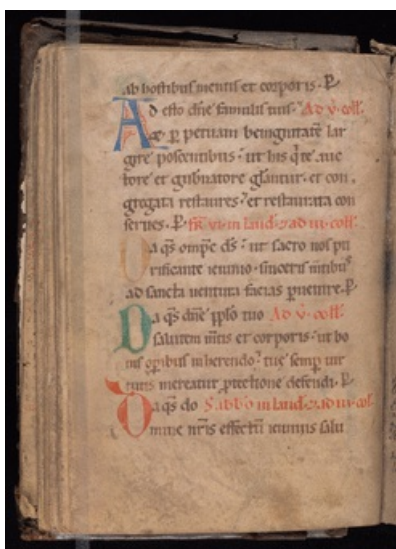 ab hostibus mentis et corporis. P
Ad esto dñe famulis tuis. Ad v̄. coll.
& p̄ petuam benignitatē lar
gire poscentibus ut his q̄ te auc
tore et gubnatore gl̄antur. et con
gregata restaures et restaurata con
serues. P. fr̄ vi. in laud. & ad iii. coll.
Da qs omp̄e ds̄ ut sacro nos pu
rificante ieiunio. sinceris mtibus
ad sancta uentura facias puenire. P
Da qs dñe pplo tuo Ad v̄. coll.
salutem mtis et corporis ut bo
nis opibus inherendo tue semp uir
tutis mereatur ptectione defendi. P
Da qs do Sabbo in laud. & ad iii. col.
mine nr̄is effectū ieiuniis salu